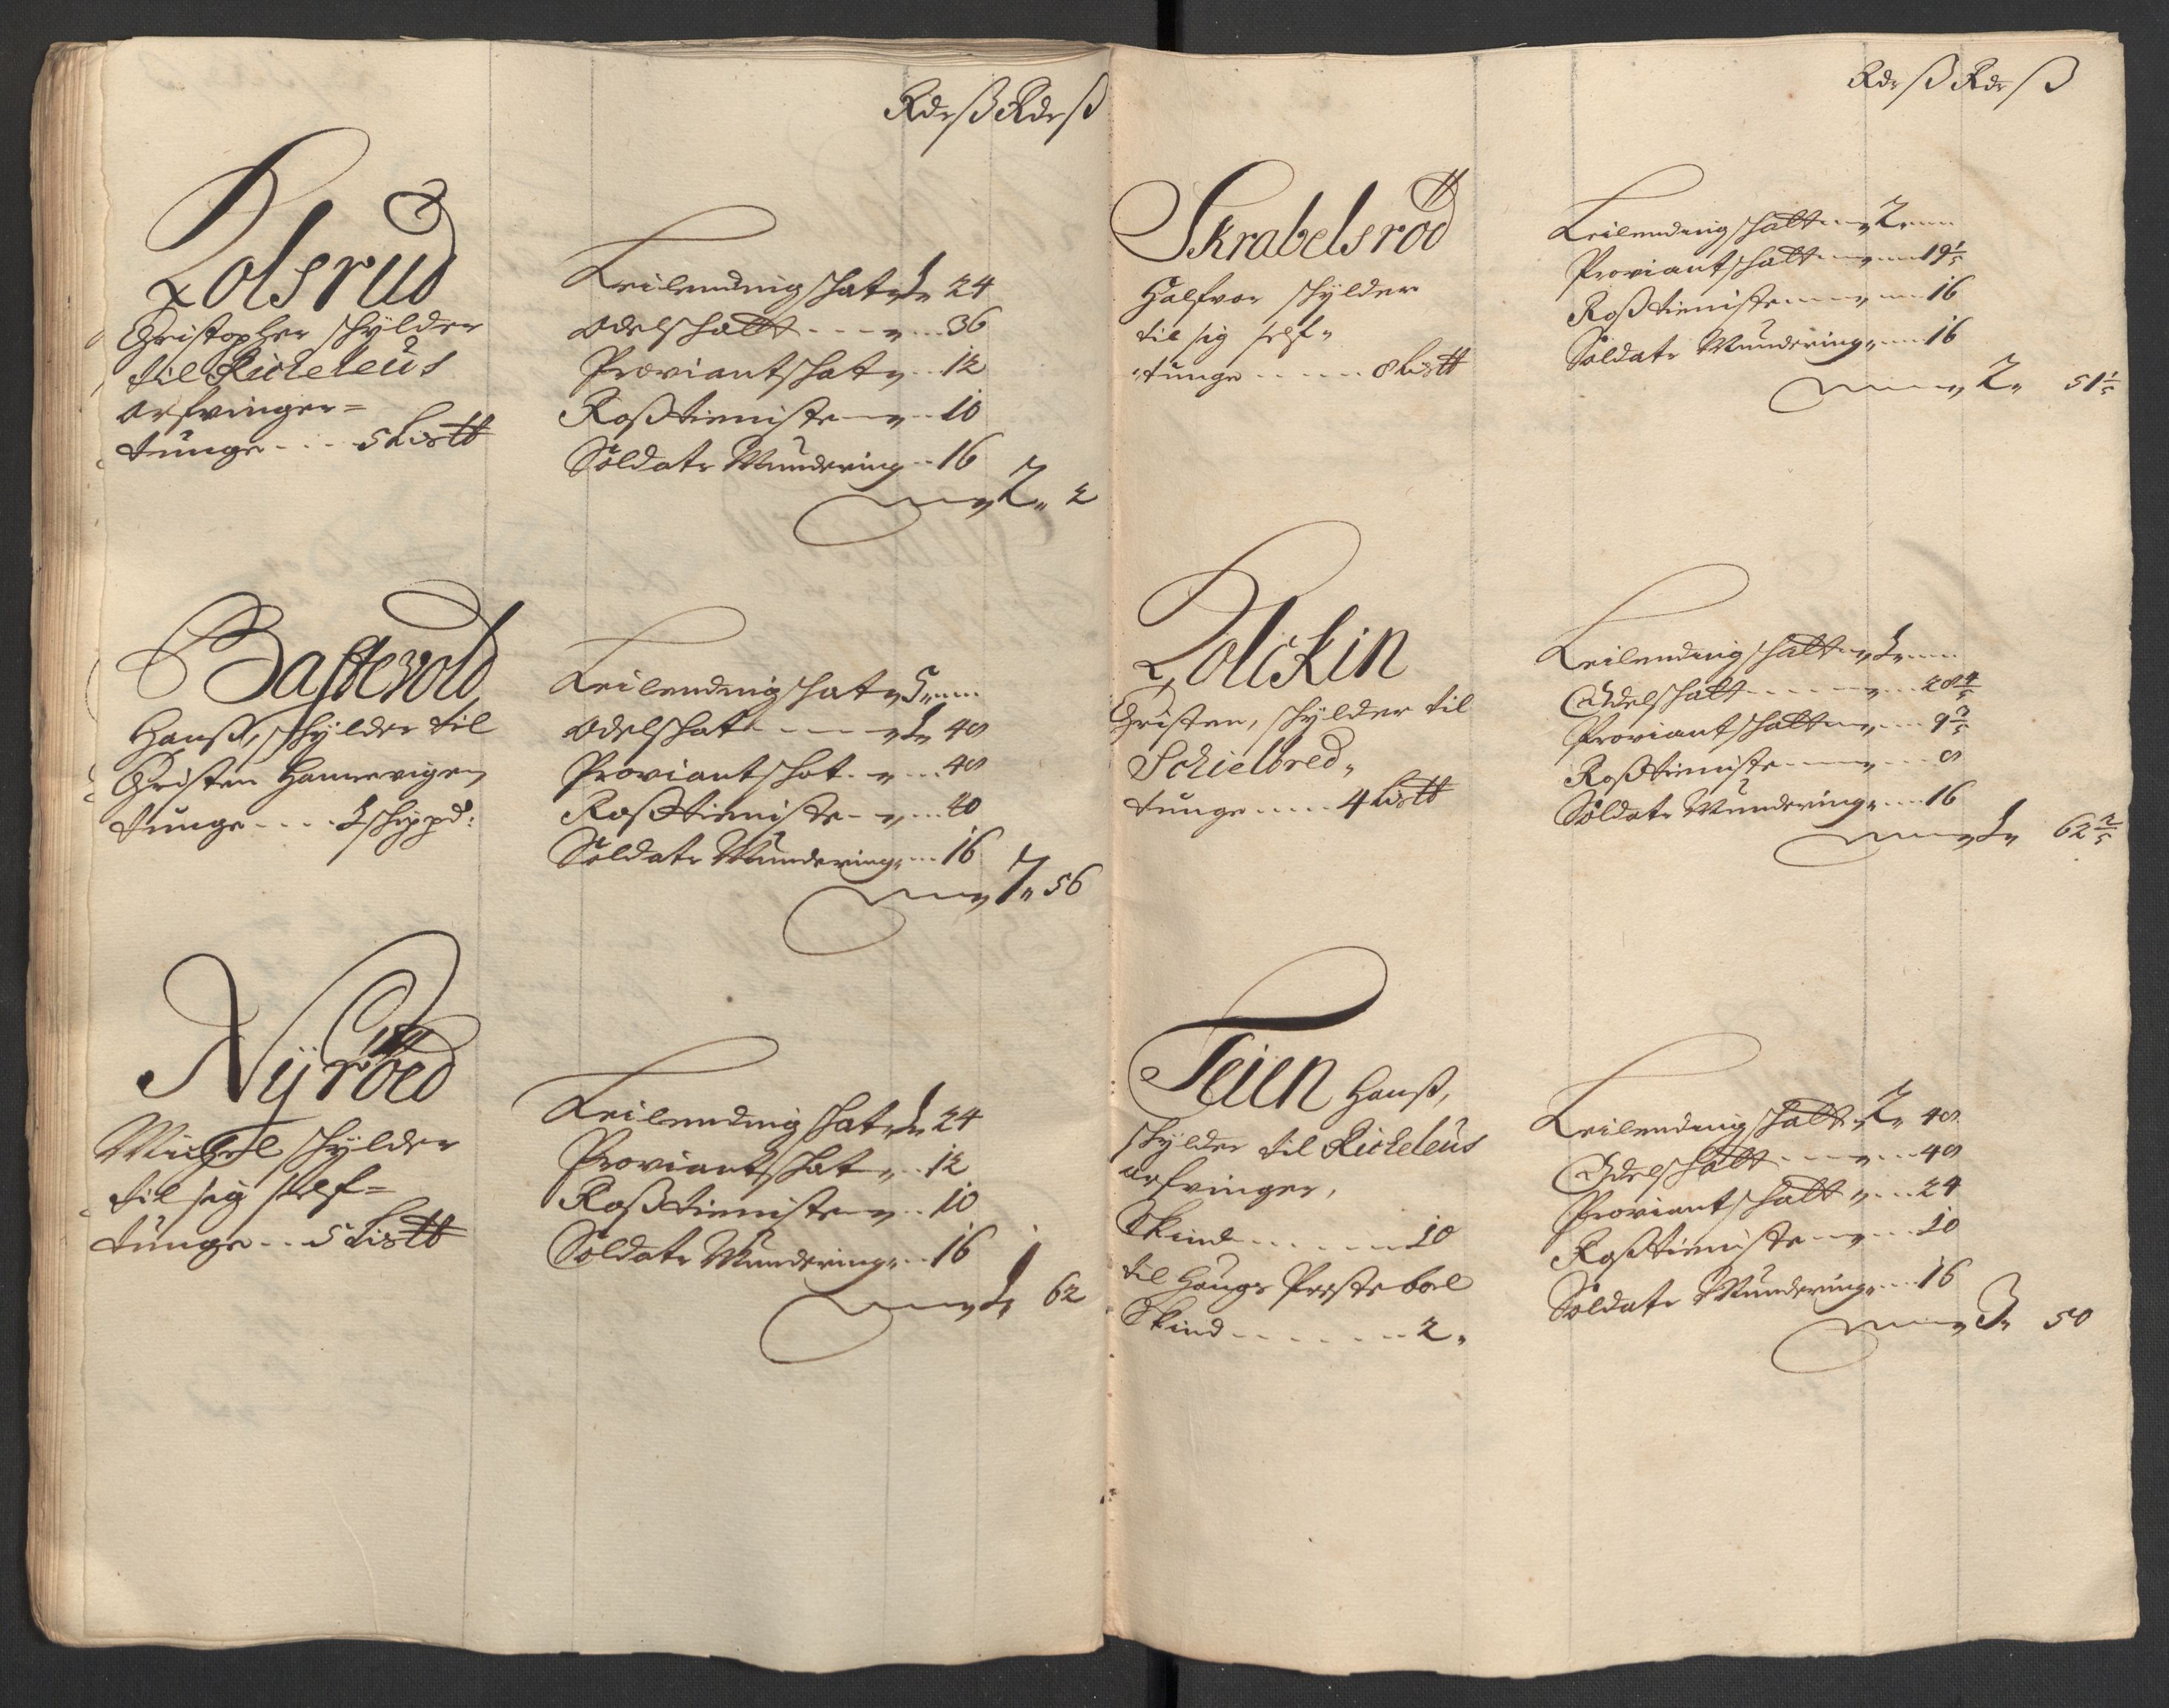 Rdr ß Rdr ß
Rolsrud
Christopher schylder
til Richeleus
arfvinger=
tunge - - - 5 Lis℔
Leilendnig schat „ 1 „ 24
Odelschatt - - - „ - - 36
Proviantschat „ - - 12
Roßtieniste - „ - - 10
Soldate Mundering - - 16
„ 2 „ 2
Bassevold
Hanß, schylder til
Christen Hannevigen
tunge - - - - 1 schippd:
Leilendnig schat „ 5 „
Odelschat - - - „ 1 „ 48
Proviantschat - „ - - 48
Roßtieniste - „ - - 40
Soldate Mundering „ - - 16
„ 7 „ 56
Nÿröed
Michel schylder
til sig self=
tunge - - 5 Lis℔
Leilendnig schat „ 1 „ 24
Proviantschat „ - - 12
Roßtieniste „ - - 10
Soldate Mundering „ - - 16
„ 1 „ 62
Rdr ß Rdr ß
Skrabelsröd
Halfvor schylder
til sig self „
tunge - - - - - 8 Lis℔
Leilendnig schatt „ 2 „
Proviantschatt „ - - 19 1/5
Roßtieniste - - „ - - 16
Soldate Mundering „ - - 16
„ 2 „ 51 1/5
Rolckin
Christen, schylder til
Schielbred „
tunge - - - - 4 Lis℔
Leilendnig schatt „ 1 „
Odelschatt - - - - „ - - 28 4/5
Proviantschatt „ - - 9 3/5
Roßtieniste - - „ - - 8
Soldate Mundering „ - - 16
„ 1 „ 62 2/5
Feien Hanß,
schylder til Richeleus
arfvinger,
Skind - - - - - - 10
til Haugs Prestebol
Skind - - - - - - - 2 „
Leilendnig schatt „ 2 „ 48
Odelschatt - - - „ - - 48
Proviantschatt „ - - 24
Roßtieniste - - „ - - 10
Soldate Mundering „ - - 16
„ 3 „ 50